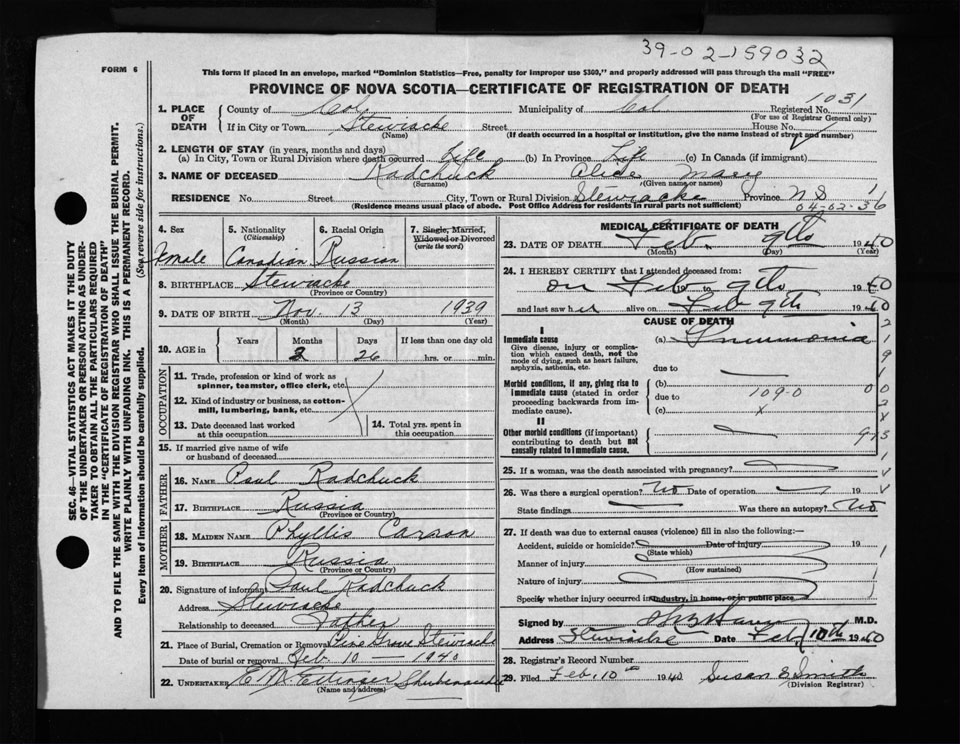 39-02-159032
FORM 6
This form if placed in an envelope, marked "Dominion Statistics—Free, penalty for improper use $300," and properly addressed will pass through the mail "FREE"
PROVINCE OF NOVA SCOTIA—CERTIFICATE OF REGISTRATION OF DEATH
1. PLACE OF DEATH County of Col. Municipality of Col Registered No. 1031
(For use of Registrar General only)
If in City or Town Stewiacke Street House No.
(Name) (If death occurred in a hospital or institution, give the name instead of street and number)
2. LENGTH OF STAY (in years, months and days)
(a) In City, Town or Rural Division where death occurred Life (b) In Province Life (c) In Canada (if immigrant)
3. NAME OF DECEASED Radchuck Alice Mary
(Surname) (Given name or names)
RESIDENCE No. Street City, Town or Rural Division Stewiacke Province N.S 1
(Residence means usual place of abode. Post Office Address for residents in rural parts not sufficient) 04-02-36
4. Sex 5. Nationality (Citizenship) 6. Racial Origin 7. Single, Married, Widowed or Divorced (write the word)
Female Canadian Russian
8. BIRTHPLACE Stewiacke
(Province or Country)
9. DATE OF BIRTH Nov. 13 1939
(Month) (Day) (Year)
10. AGE in Years Months Days If less than one day old
2 26 hrs. or min.
OCCUPATION
11. Trade, profession or kind of work as spinner, teamster, office clerk, etc.
12. Kind of industry or business, as cotton-mill, lumbering, bank, etc.
13. Date deceased last worked at this occupation
14. Total yrs. spent in this occupation
15. If married give name of wife or husband of deceased
FATHER
16. NAME Paul Radchuck
17. BIRTHPLACE Russia
(Province or Country)
MOTHER
18. MAIDEN NAME Phyllis Carson
19. BIRTHPLACE Russia
(Province or Country)
20. Signature of informant Paul Radchuck
Address Stewiacke
Relationship to deceased Father
21. Place of Burial, Cremation or Removal Pine Grove Stewiacke
Date of burial or removal Feb. 10 — 1940
22. UNDERTAKER E M Ettinger Shubenacadie
(Name and address)
MEDICAL CERTIFICATE OF DEATH
23. DATE OF DEATH Feb. 9th 1940
(Month) (Day) (Year)
24. I HEREBY CERTIFY that I attended deceased from:
on Feb 19 to 9th 1940
and last saw her alive on Feb 9th 1940
CAUSE OF DEATH
I
Immediate cause (a) Pneumonia
Give disease, injury or complication which caused death, not the mode of dying, such as heart failure, asphyxia, asthenia, etc.
due to
Morbid conditions, if any, giving rise to immediate cause (stated in order proceeding backwards from immediate cause).
(b) due to 109-0
(c) x
II
Other morbid conditions (if important) contributing to death but not causally related to immediate cause.
25. If a woman, was the death associated with pregnancy?
26. Was there a surgical operation? No Date of operation 19
State findings Was there an autopsy? No
27. If death was due to external causes (violence) fill in also the following:—
Accident, suicide or homicide? Date of injury 19
(State which)
Manner of injury
(How sustained)
Nature of injury
Specify whether injury occurred in industry, in home, or in public place
Signed by M.D.
Address Stewiacke Date Feb 10th 1940
28. Registrar's Record Number
29. Filed Feb. 10th 1940 Susan E Smith
(Division Registrar)
SEC. 46—VITAL STATISTICS ACT MAKES IT THE DUTY
OF THE UNDERTAKER OR PERSON ACTING AS UNDERTAKER TO OBTAIN ALL THE PARTICULARS REQUIRED
IN THE "CERTIFICATE OF REGISTRATION OF DEATH"
AND TO FILE THE SAME WITH THE DIVISION REGISTRAR WHO SHALL ISSUE THE BURIAL PERMIT.
WRITE PLAINLY WITH UNFADING INK. THIS IS A PERMANENT RECORD.
Every item of information should be carefully supplied. (See reverse side for instructions.)